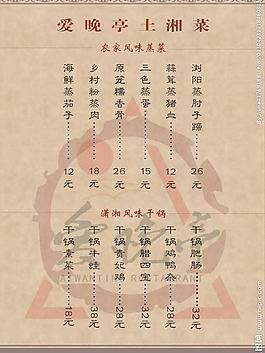 爱晚亭土湘菜
农家风味蒸菜
浏阳蒸肘子蹄……26元
蒜茸蒸猪血……12元
三色蒸蛋……15元
原笼糯香骨……26元
乡村粉蒸肉……18元
海鲜蒸茄子……12元
潇湘风味干锅
干锅肥肠……32元
干锅鸡鸭杂……28元
干锅腊四宝……32元
干锅贵妃鸡……28元
干锅牛蛙……38元
干锅素菜……18元
AIWANTING RESTAURANT